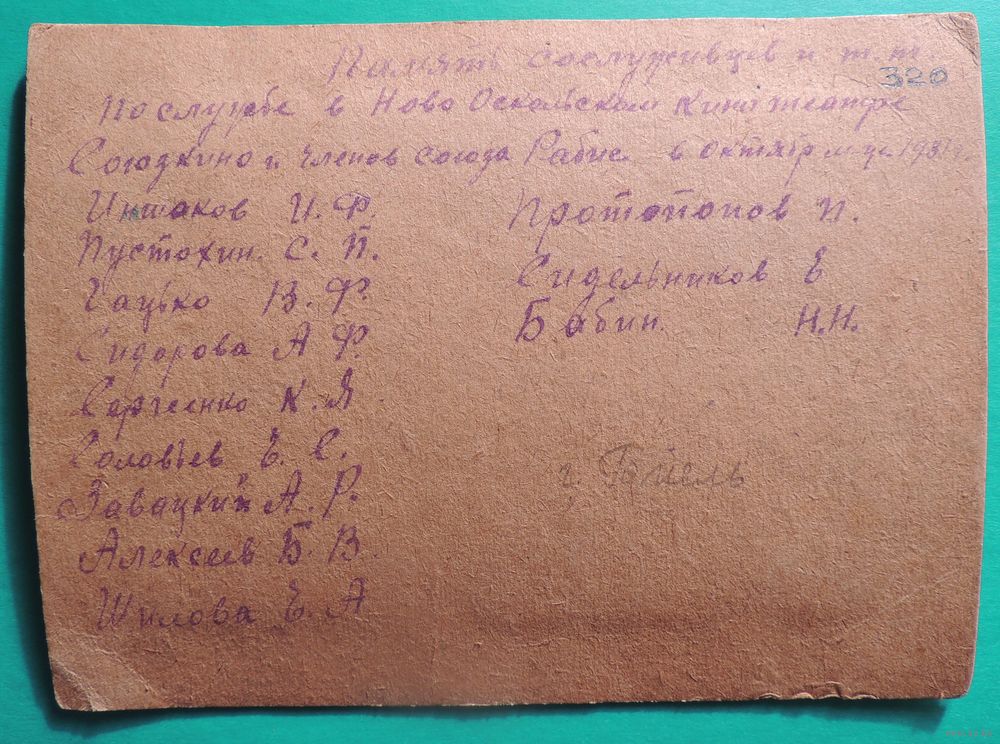 Память сослуживцев и т.т.
320
по службе в Ново Оскольском кинотеатре
Союзкино и членов союза Рабис в октябр м-це 193
Иншаков И. Ф.
Пустохин С. П.
Гацько В. Ф.
Сидорова А Ф.
Сергеенко К. Я.
Соловьев Е. С.
Завацкий А. Р.
Алексеев Б. В.
Шилова Е. А
Протопопов П.
Сидельников Е
Бабин. Н.Н.
г.